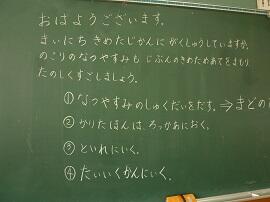 おはようございます。
まいにち きめたじかんに がくしゅうしていますか。
のこりのなつやすみも じぶんのきめためあてをまもり
たのしくすごしましょう。
① なつやすみのしゅくだいをだす。⇒まどの
② かりたほんは、ろっかあにおく。
③ といれにいく。
④ たいいくかんにいく。